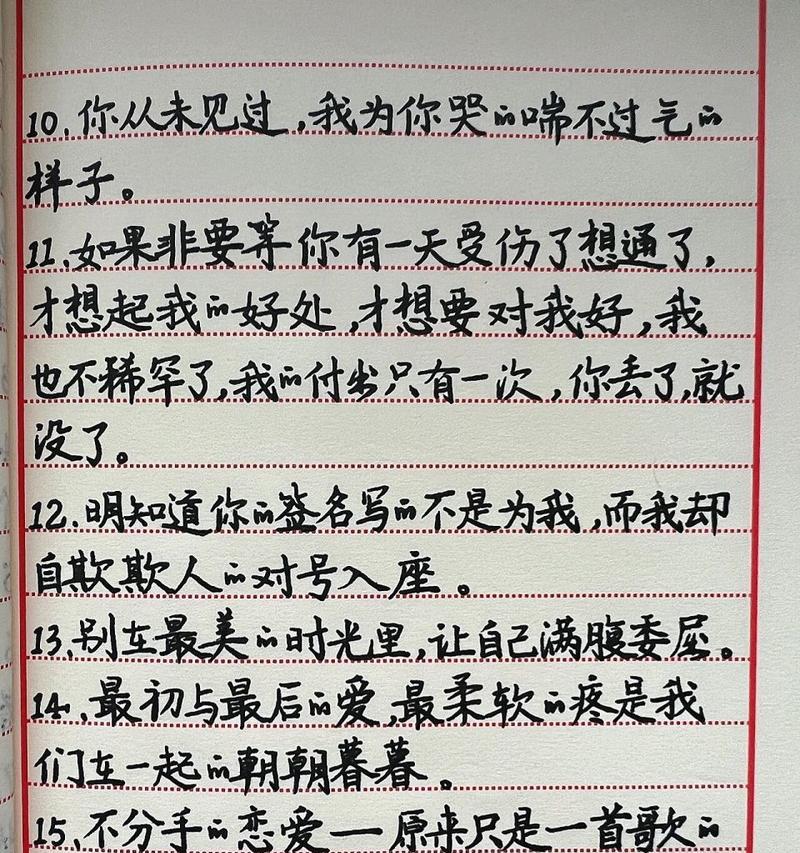 10.你从未见过,我为你哭的喘不过气的
样子。
11.如果非要等你有一天受伤了想通了,
才想起我的好处,才想要对我好,我
也不稀罕了,我的付出只有一次,你丢了,就
没了。
12.明知道你的签名写的不是为我,而我却
自欺欺人的对号入座。
13.别在最美的时光里,让自己满腹委屈。
14.最初与最后的爱,最柔软的疼是我
们在一起的朝朝暮暮。
15.不分手的恋爱一原来只是一首歌的